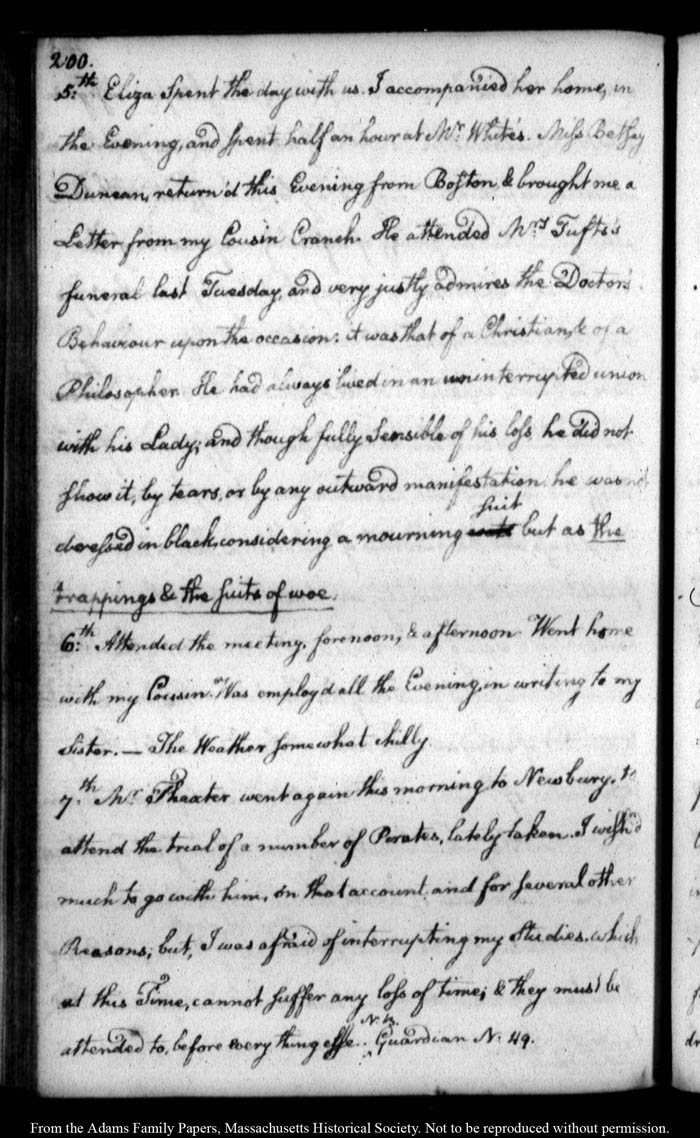 200.
5:th Eliza Spent the day with us. I accompanied her home, in
the Evening, and spent half an hour at Mr. White's. Miss Betsey
Duncan, return'd this Evening from Boston, & brought me a
Letter from my Cousin Cranch. He attended Mrs. Tufts's
funeral last Tuesday, and very justly admires the Doctor's
Behaviour upon the occasion: it was that of a Christian, & of a
Philosopher. He had always lived in an uninterrupted union
with his Lady; and though fully Sensible of his loss, he did not
show it, by tears, or by any outward manifestation. he was not
dressed in black, considering a mourning suit but as the
trappings & the suits of woe.
6:th Attended the meeting, forenoon, & afternoon. Went home
with my Cousin. Was employ'd all the Evening, in writing to my
Sister. — The Weather somewhat chilly.
7.th Mr. Thaxter went again this morning to Newbury, to
attend the trial of a number of Pirates, lately taken. I wish'd
much to go with him, on that account and for several other
Reasons; but, I was afraid of interrupting my Studies. which
at this Time, cannot suffer any loss of time; & they must be
attended to, before every thing else. N.B. Guardian N. 49.
From the Adams Family Papers, Massachusetts Historical Society. Not to be reproduced without permission.